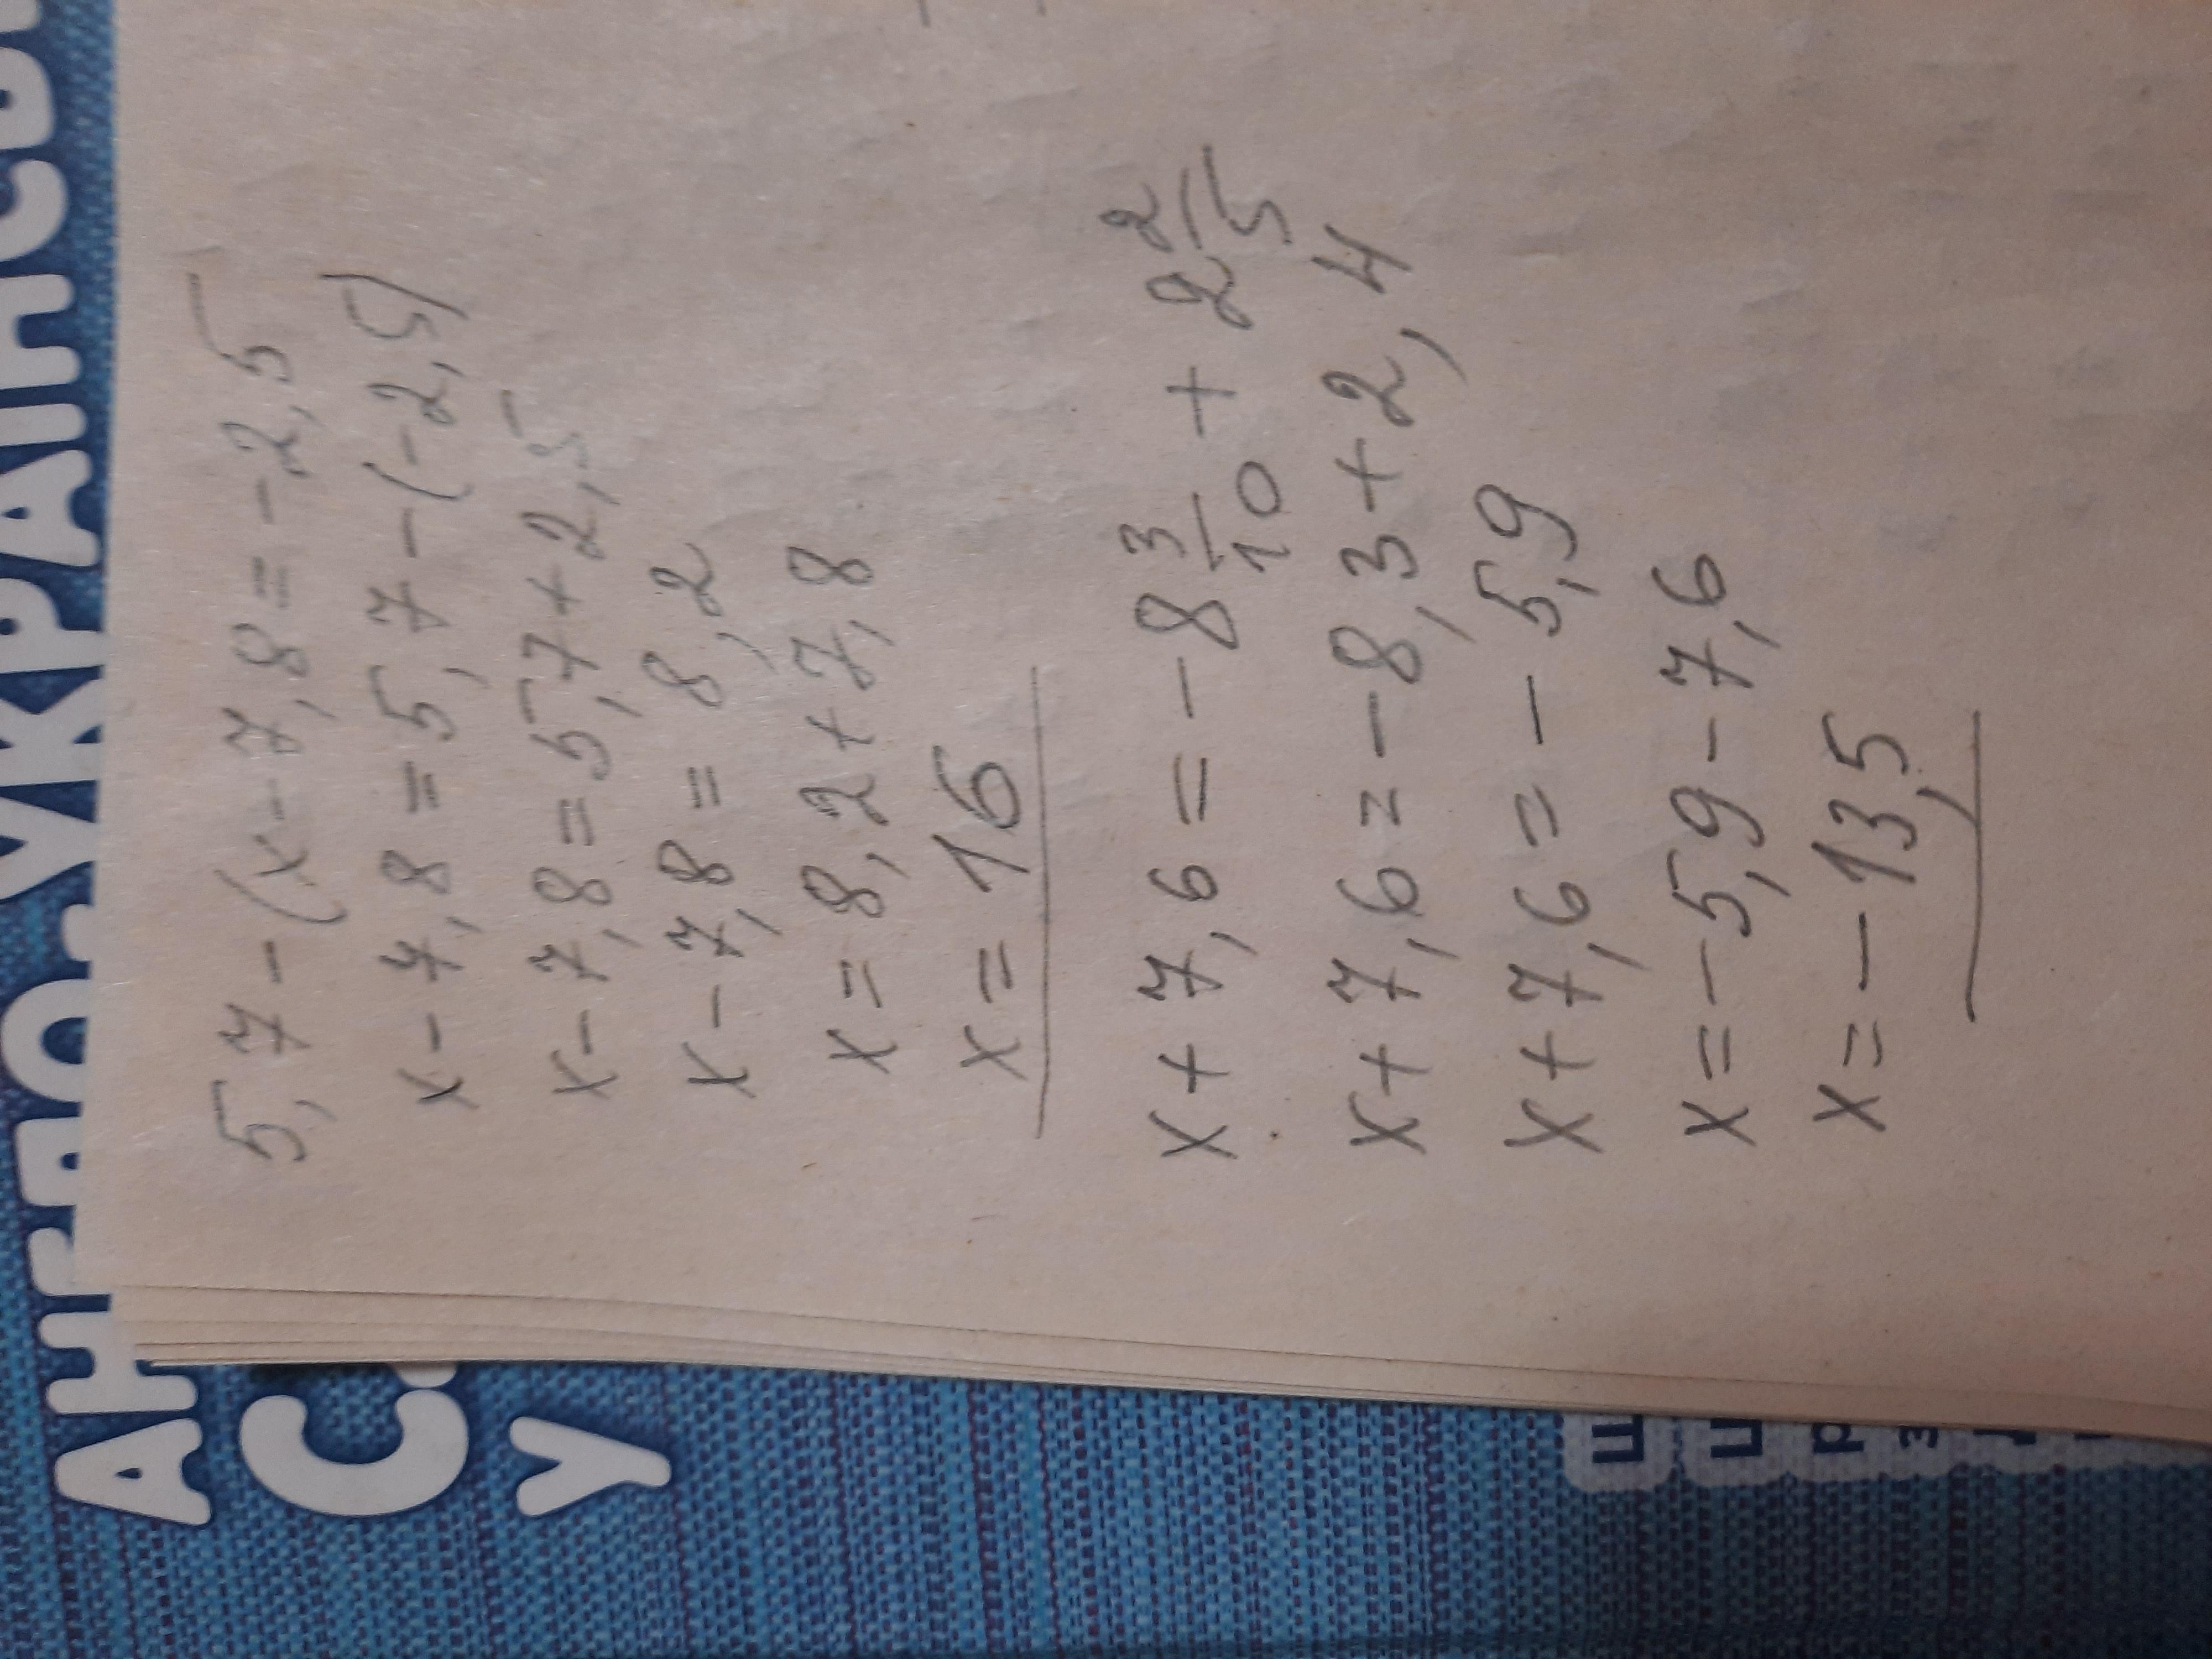 5,7-(x-7,8=-2,5
x-7,8=5,7-(-2,5)
x-7,8=5,7+2,5
x-7,8=8,2
x=8,2+7,8
x=16
x+7,6=-8 3/10+2 2/5
x+7,6=-8,3+2,4
x+7,6=-5,9
x=-5,9-7,6
x=-13,5